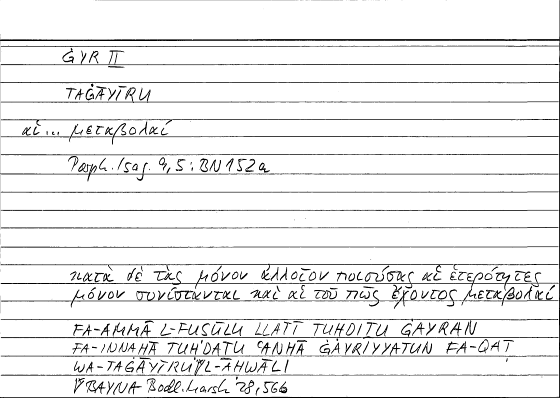 ĠYR II
TAĠĀYĪRU
αἱ... μεταβολαί
Porph. Isag. 9,5: BN 152a
κατὰ δὲ τὰς μόνον ἀλλοῖον ποιούσας αἱ ἑτερότητες
μόνον συνίστανται καὶ αἱ τοῦ πῶς ἔχοντος μεταβολαί
FA-AMMĀ L-FUṢŪLU LLATĪ TUḤDIṮU ĠAYRAN
FA-INNAHĀ TUḤDAṮU ʿANHĀ ĠAYRIYYATUN FA-QAṬ
WA-TAĠĀYĪRU L-AḤWĀLI
BAYNA Bodl. Marsh 28, 56b